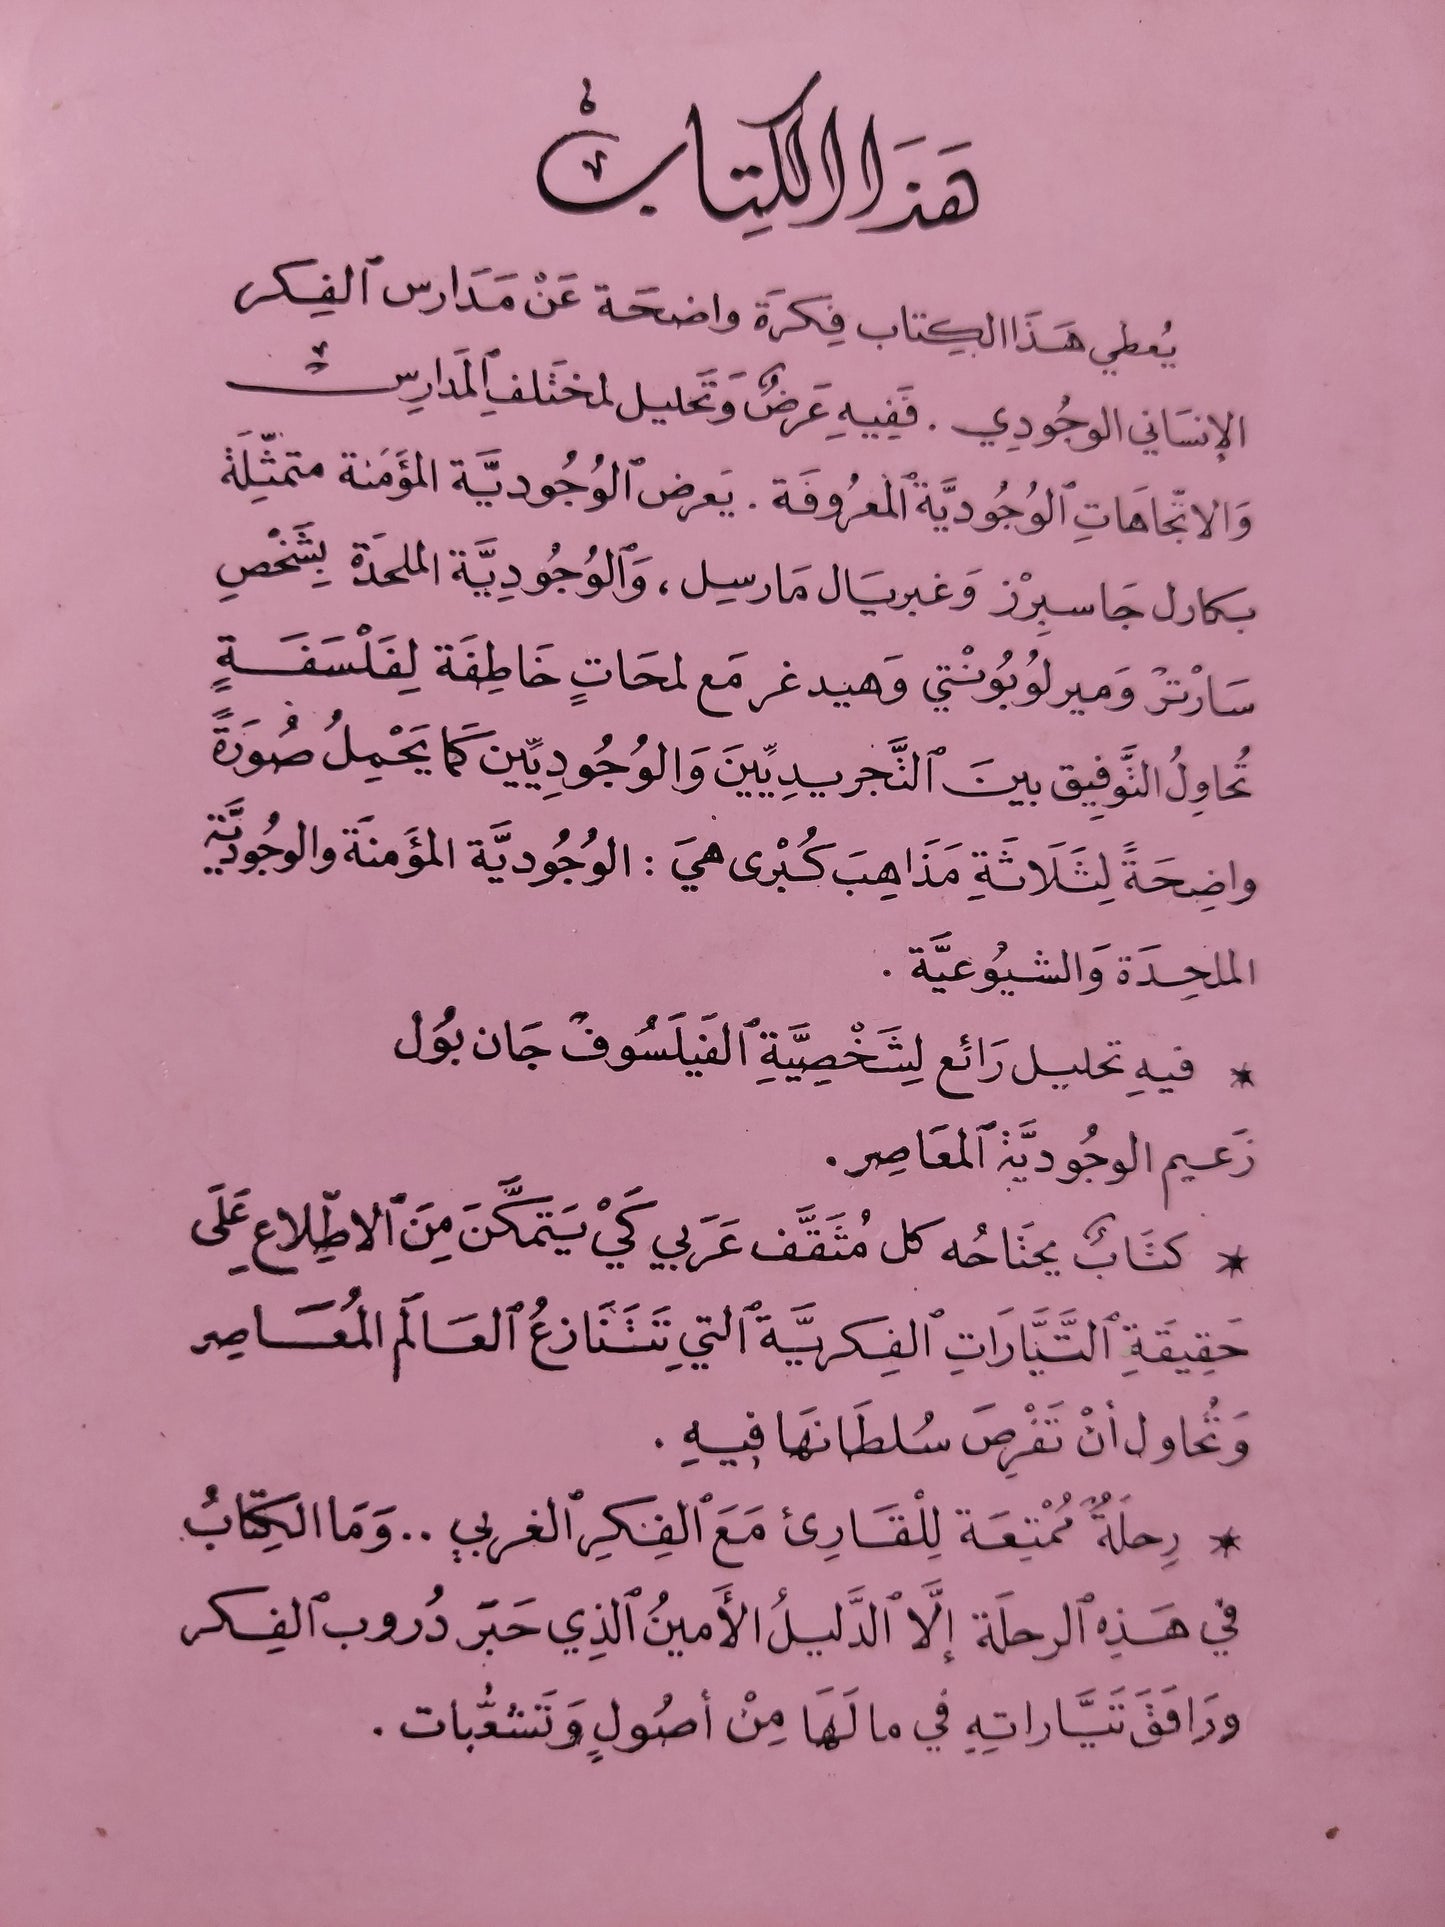 هَذَا الكِتَابُ
يُعطي هَذَا الكِتاب فِكرَة واضحَة عَنْ مَدَارس ٱلفِكر
الإنسَاني الوجُودِي . فَفِيهِ عَرضٌ وَتَحليل لمختَلفِ ٱلمَدارِس
وَالاتّجاهَاتِ ٱلوُجُوديَّة ٱلمعرُوفَة . يَعرض ٱلوُجُوديَّة المؤَمنة متمثّلِة
بكارل جَاسبِرْز وَغبريَال مَارسِل ، وَٱلوُجُودِيَّة الملحدَة بِشَخْصِ
سَارْترْ وَميرلوُبُونْتي وَهيدغر مَع لمحَاتٍ خَاطِفَة لِفَلْسَفَةٍ
تُحاوِلُ التَّوفِيق بينَ ٱلتَّجريدِيّينَ وَالوُجُودِيّين كَمَا يَحْمِلُ صُورَةً
واضِحَةً لِثَلَاثَةِ مَذَاهِبَ كُبْرى هيَ : الوُجُوديَّة المؤَمنَة والوجُوديَّة
الملحِدَة وَالشيُوعيَّة .
★ فيهِ تحليل رَائع لِشَخْصِيَّةِ ٱلفَيلَسُوف جَان بوُل
زَعيم الوجُوديَّة ٱلمعَاصِر .
★ كتَابٌ يحتَاحُه كل مُثَقَّف عَرَبي كَيْ يَتَمكَّنَ مِنَ ٱلاطِّلاع عَلَى
حَقِيقَةِ ٱلتَّيَّارَاتِ ٱلفِكريَّة ٱلتي تَتَنَازعُ ٱلعَالَم المُعَاصِر
وَتُحاول أنْ تَفْرِضَ سُلطَانهَا فيهِ .
★ رِحلَةٌ مُمْتِعَة لِلْقَارِئ مَعَ ٱلفِكرِ ٱلغربي .. وَمَا الكِتَابُ
في هَذِهِ ٱلرحلَة إلَّا ٱلدَّليلُ الأَمينُ ٱلذِي خَبَر دُروب ٱلفِكر
ورَافَقَ تَيَّاراتِهِ في ما لَهَا مِنْ أصُولٍ وَتَشعُّبات .